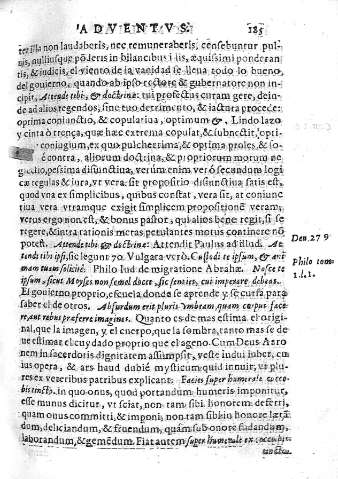 ADVENTVS. 185
ter illa non laudaberis, nec remuneraberis, censebuntur pul-
uis, nulliusque põderis in bilancibus illis, æquissimi ponderan-
tis, & iudicis, el viento de la vanidad se lleua todo lo bueno,
del gouierno, quando ab ipso rectore & gubernatore non in-
cipit, Attende tibi, & doctrinæ: tui profectus curam gere, dein-
de ad alios regendos, sine tuo detrimento, & iactura procede:
optima coniunctio, & copulatiua, optimum &. Lindo lazo
y cinta ò trença, quæ hæc extrema copulat, & subnectit, opti-
coniugium, ex quo pulcherrima, & optima proles, & so-
è contra, aliorum doctrina, & propriorum morum ne
glectio, pessima disiunctiua, verùm enim verò secundum logi-
cæ regulas & iura, vt vera sit propositio disiunctiua satis est,
quod vna ex simplicibus, quibus constat, vera sit, at coniunc
tiua vera vtramque exigit simplicem propositionem veram,
verus ergo non est, & bonus pastor, qui alios bene regit, si se
regere, & intra rationis metas petulantes motus continere no
potest. Attende tibi & doctrinæ: Attendit Paulus ad illud. At-
tende tibi ipsi, sic legunt 70. Vulgara verò. Custodi te ipsum, & ani
mam tuam solicitè. Philo Iud de migratione Abrahæ. Nosce te
ipsum, sicut Moyses non semel docet, sic fenties, cui imperare debeas.
El gouierno proprio, escuela donde se aprende y se cursa para
saber el de otros. Absurdum erit pluris vmbram, quam corpus face
re, aut rebus preferre imagines. Quanto es de mas estima el origi-
nal, que la imagen, y el cuerpo, que la sombra, tanto mas se de-
ue estimar el cuydado proprio que el ageno. Cum Deus Aaro
nem in sacerdotij dignitatem assumpsit, veste indui iubet, cu
ius opera, & ars haud dubiè mysticum quid innuit, vt plu-
res ex veteribus patribus explicant. Facies super humerale ex cocco
bis tincto. in quo onus, quod portandum humeris imponitur,
esse munus dicitur, vt sciat, non tam sibi honorem deferri,
quam onus committi, & imponi, non tam sibi in honore lætã
dum, deliciandum, & fruendum, quâm sub onore sudandum,
laborandum, & gemẽdum. Fiat autem super humerale ex cocco bis
tincto
Deu. 27 9
Philo tom
1. l. 1.